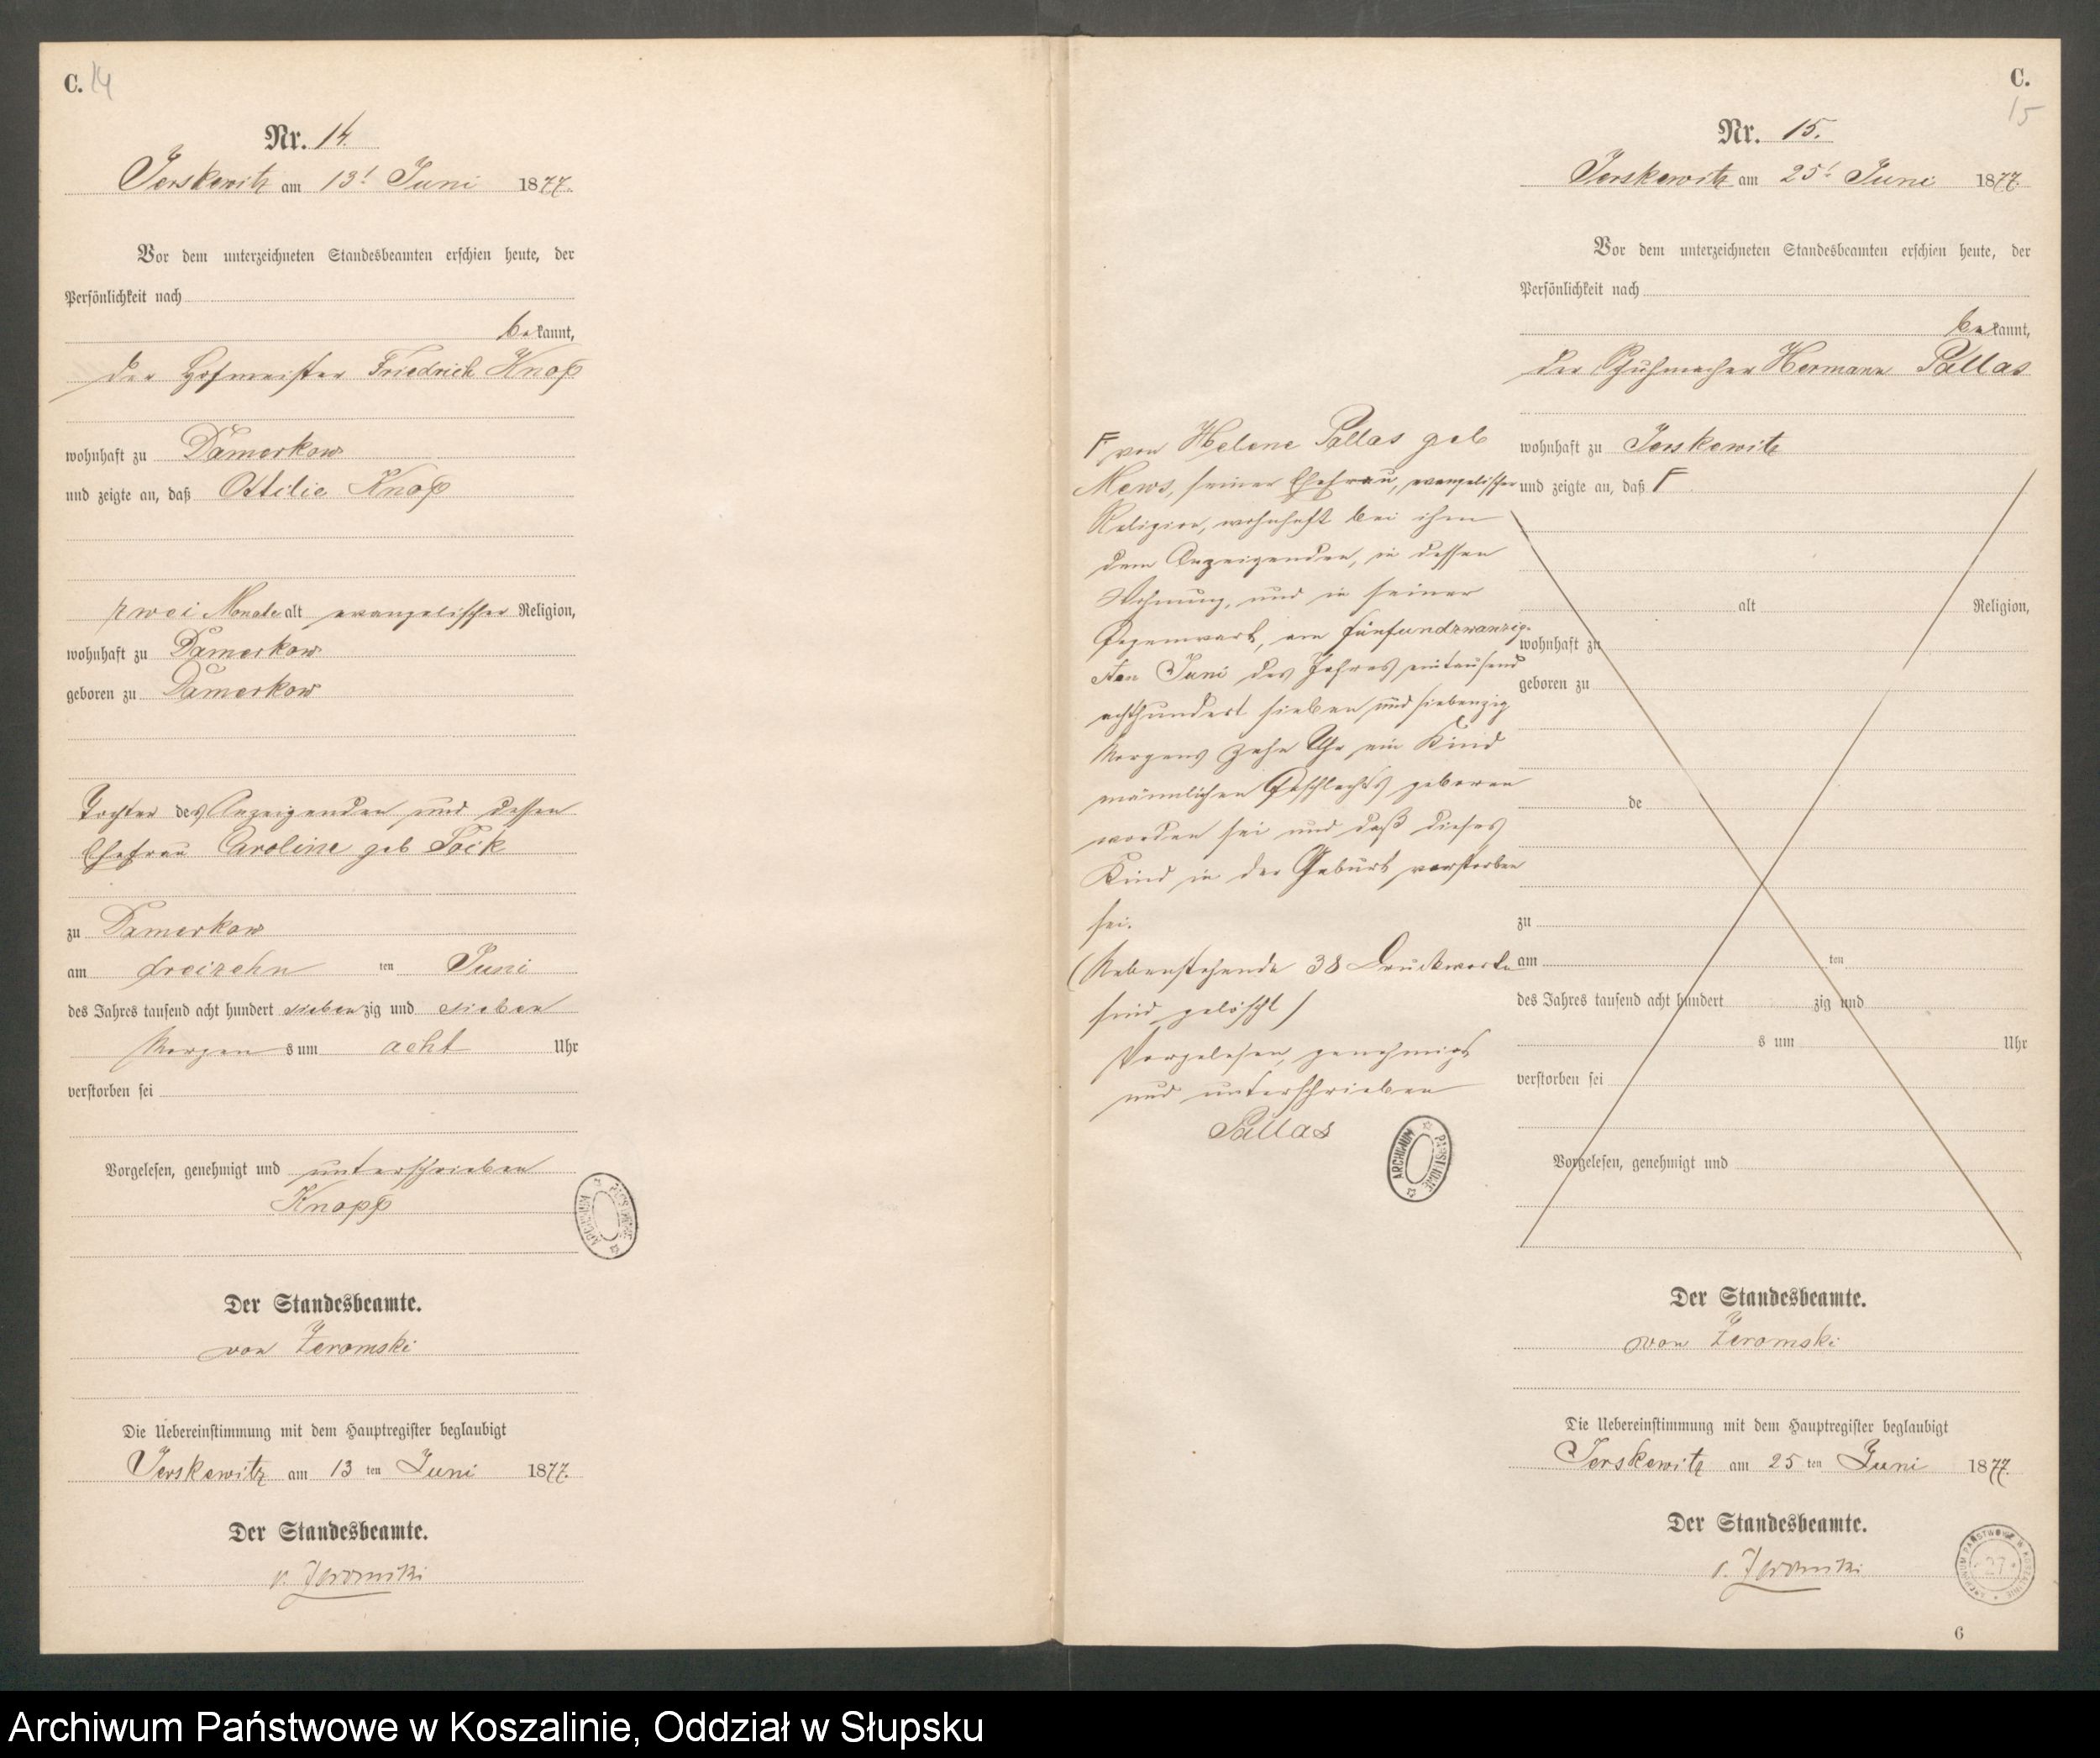 C. 14
Nr. 14.
Jerskewitz am 13t Juni 1877.
Vor dem unterzeichneten Standesbeamten erschien heute, der
Persönlichkeit nach
bekannt,
der Hofmeister Friedrich Knop
wohnhaft zu Damerkow
und zeigte an, daß Ottilie Knop
zwei Monate alt evangelischer Religion,
wohnhaft zu Damerkow
geboren zu Damerkow
Tochter des Anzeigenden und dessen
Ehefrau Caroline geb Poik
zu Damerkow
am dreizehn ten Juni
des Jahres tausend acht hundert siebenzig und sieben
Morgens um acht Uhr
verstorben sei
Vorgelesen, genehmigt und unterschrieben
Knopp
Der Standesbeamte.
von Zeromski
Die Uebereinstimmung mit dem Hauptregister beglaubigt
Jerskewitz am 13 ten Juni 1877.
Der Standesbeamte.
v. Zeromski
ARCHIWUM
C.
15
Nr. 15.
Jerskewitz am 25t Juni 1877.
Vor dem unterzeichneten Standesbeamten erschien heute, der
Persönlichkeit nach
bekannt,
der Schuhmacher Hermann Pallas
wohnhaft zu Jerskewitz
und zeigte an, daß F
F von Helene Pallas geb
Mews, seiner Ehefrau, evangelischer
Religion, wohnhaft bei ihm
dem Anzeigenden, in dessen
Wohnung, und in seiner
Gegenwart, am fünfundzwanzig-
sten Juni des Jahres eintausend
achthundert sieben und siebenzig
Morgens zehn Uhr ein Kind
männlichen Geschlechts geboren
worden sei und daß dieses
Kind in der Geburt verstorben
sei.
(Nebenstehende 38 Druckworte
sind gelöscht)
Vorgelesen, genehmigt
und unterschrieben
Pallas
ARCHIWUM PAŃSTWOWE
alt Religion,
wohnhaft zu
geboren zu
de
zu
am ten
des Jahres tausend acht hundert zig und
s um Uhr
verstorben sei
Vorgelesen, genehmigt und
Der Standesbeamte.
von Zeromski
Die Uebereinstimmung mit dem Hauptregister beglaubigt
Jerskewitz am 25 ten Juni 1877.
Der Standesbeamte.
v. Zeromski
ARCHIWUM PAŃSTWOWE W KOSZALINIE
27
6
Archiwum Państwowe w Koszalinie, Oddział w Słupsku